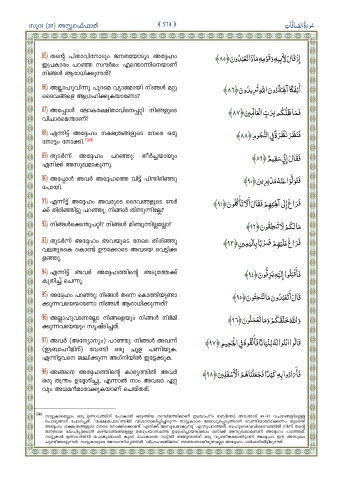 സൂറഃ (37) അസ്സ്വാഫ്ഫാത്ത്
574
سُورَةُ الصَّافَّاتِ
85) തന്റെ പിതാവിനോടും ജനതയോടും അദ്ദേഹം
ഇപ്രകാരം പറഞ്ഞ സന്ദർഭം: എന്തൊന്നിനെയാണ്
നിങ്ങൾ ആരാധിക്കുന്നത്?
إِذْ قَالَ لِأَبِيهِ وَقَوْمِهِ مَاذَا تَعْبُدُونَ ﴿٨٥﴾
86) അല്ലാഹുവിന്നു പുറമെ വ്യാജമായി നിങ്ങൾ മറ്റു
ദൈവങ്ങളെ ആഗ്രഹിക്കുകയാണോ?
أَئِفْكًا آلِهَةً دُونَ اللَّهِ تُرِيدُونَ ﴿٨٦﴾
87) അപ്പോൾ ലോകരക്ഷിതാവിനെപ്പറ്റി നിങ്ങളുടെ
വിചാരമെന്താണ്?
فَمَا ظَنُّكُم بِرَبِّ الْعَالَمِينَ ﴿٨٧﴾
88) എന്നിട്ട് അദ്ദേഹം നക്ഷത്രങ്ങളുടെ നേരെ ഒരു
നോട്ടം നോക്കി.
فَنَظَرَ نَظْرَةً فِي النُّجُومِ ﴿٨٨﴾
89) തുടർന്ന് അദ്ദേഹം പറഞ്ഞു: തീർച്ചയായും
എനിക്ക് അസുഖമാകുന്നു.
فَقَالَ إِنِّي سَقِيمٌ ﴿٨٩﴾
90) അപ്പോൾ അവർ അദ്ദേഹത്തെ വിട്ട് പിന്തിരിഞ്ഞു
പോയി.
فَتَوَلَّوْا عَنْهُ مُدْبِرِينَ ﴿٩٠﴾
91) എന്നിട്ട് അദ്ദേഹം അവരുടെ ദൈവങ്ങളുടെ നേർ
ക്ക് തിരിഞ്ഞിട്ടു പറഞ്ഞു: നിങ്ങൾ തിന്നുന്നില്ലേ?
فَرَاغَ إِلَىٰ آلِهَتِهِمْ فَقَالَ أَلَا تَأْكُلُونَ ﴿٩١﴾
92) നിങ്ങൾക്കെന്തുപറ്റി? നിങ്ങൾ മിണ്ടുന്നില്ലല്ലോ!
مَا لَكُمْ لَا تَنطِقُونَ ﴿٩٢﴾
93) തുടർന്ന് അദ്ദേഹം അവയുടെ നേരെ തിരിഞ്ഞു
വലതുകൈ കൊണ്ട് ഊക്കോടെ അവയെ വെട്ടിക്ക
ളഞ്ഞു.
فَرَاغَ عَلَيْهِمْ ضَرْبًا بِالْيَمِينِ ﴿٩٣﴾
94) എന്നിട്ട് അവർ അദ്ദേഹത്തിന്റെ അടുത്തേക്ക്
കുതിച്ച് ചെന്നു.
فَأَقْبَلُوا إِلَيْهِ يَزِفُّونَ ﴿٩٤﴾
95) അദ്ദേഹം പറഞ്ഞു: നിങ്ങൾ തന്നെ കൊത്തിയുണ്ടാ
ക്കുന്നവയെയാണോ നിങ്ങൾ ആരാധിക്കുന്നത്?
قَالَ أَتَعْبُدُونَ مَا تَنْحِتُونَ ﴿٩٥﴾
96) അല്ലാഹുവാണല്ലോ നിങ്ങളെയും നിങ്ങൾ നിർമി
ക്കുന്നവയെയും സൃഷ്ടിച്ചത്.
وَاللَّهُ خَلَقَكُمْ وَمَا تَعْمَلُونَ ﴿٩٦﴾
97) അവർ (അന്യോന്യം) പറഞ്ഞു: നിങ്ങൾ അവന്ന്
(ഇബ്രാഹീമിന്) വേണ്ടി ഒരു ചൂള പണിയുക.
എന്നിട്ടവനെ ജ്വലിക്കുന്ന അഗ്നിയിൽ ഇട്ടേക്കുക.
قَالُوا ابْنُوا لَهُ بُنْيَانًا فَأَلْقُوهُ فِي الْجَحِيمِ ﴿٩٧﴾
98) അങ്ങനെ അദ്ദേഹത്തിന്റെ കാര്യത്തിൽ അവർ
ഒരു തന്ത്രം ഉദ്ദേശിച്ചു. എന്നാൽ നാം അവരെ ഏറ്റ
വും അധമന്മാരാക്കുകയാണ് ചെയ്തത്.
فَأَرَادُوا بِهِ كَيْدًا فَجَعَلْنَاهُمُ الْأَسْفَلِينَ ﴿٩٨﴾